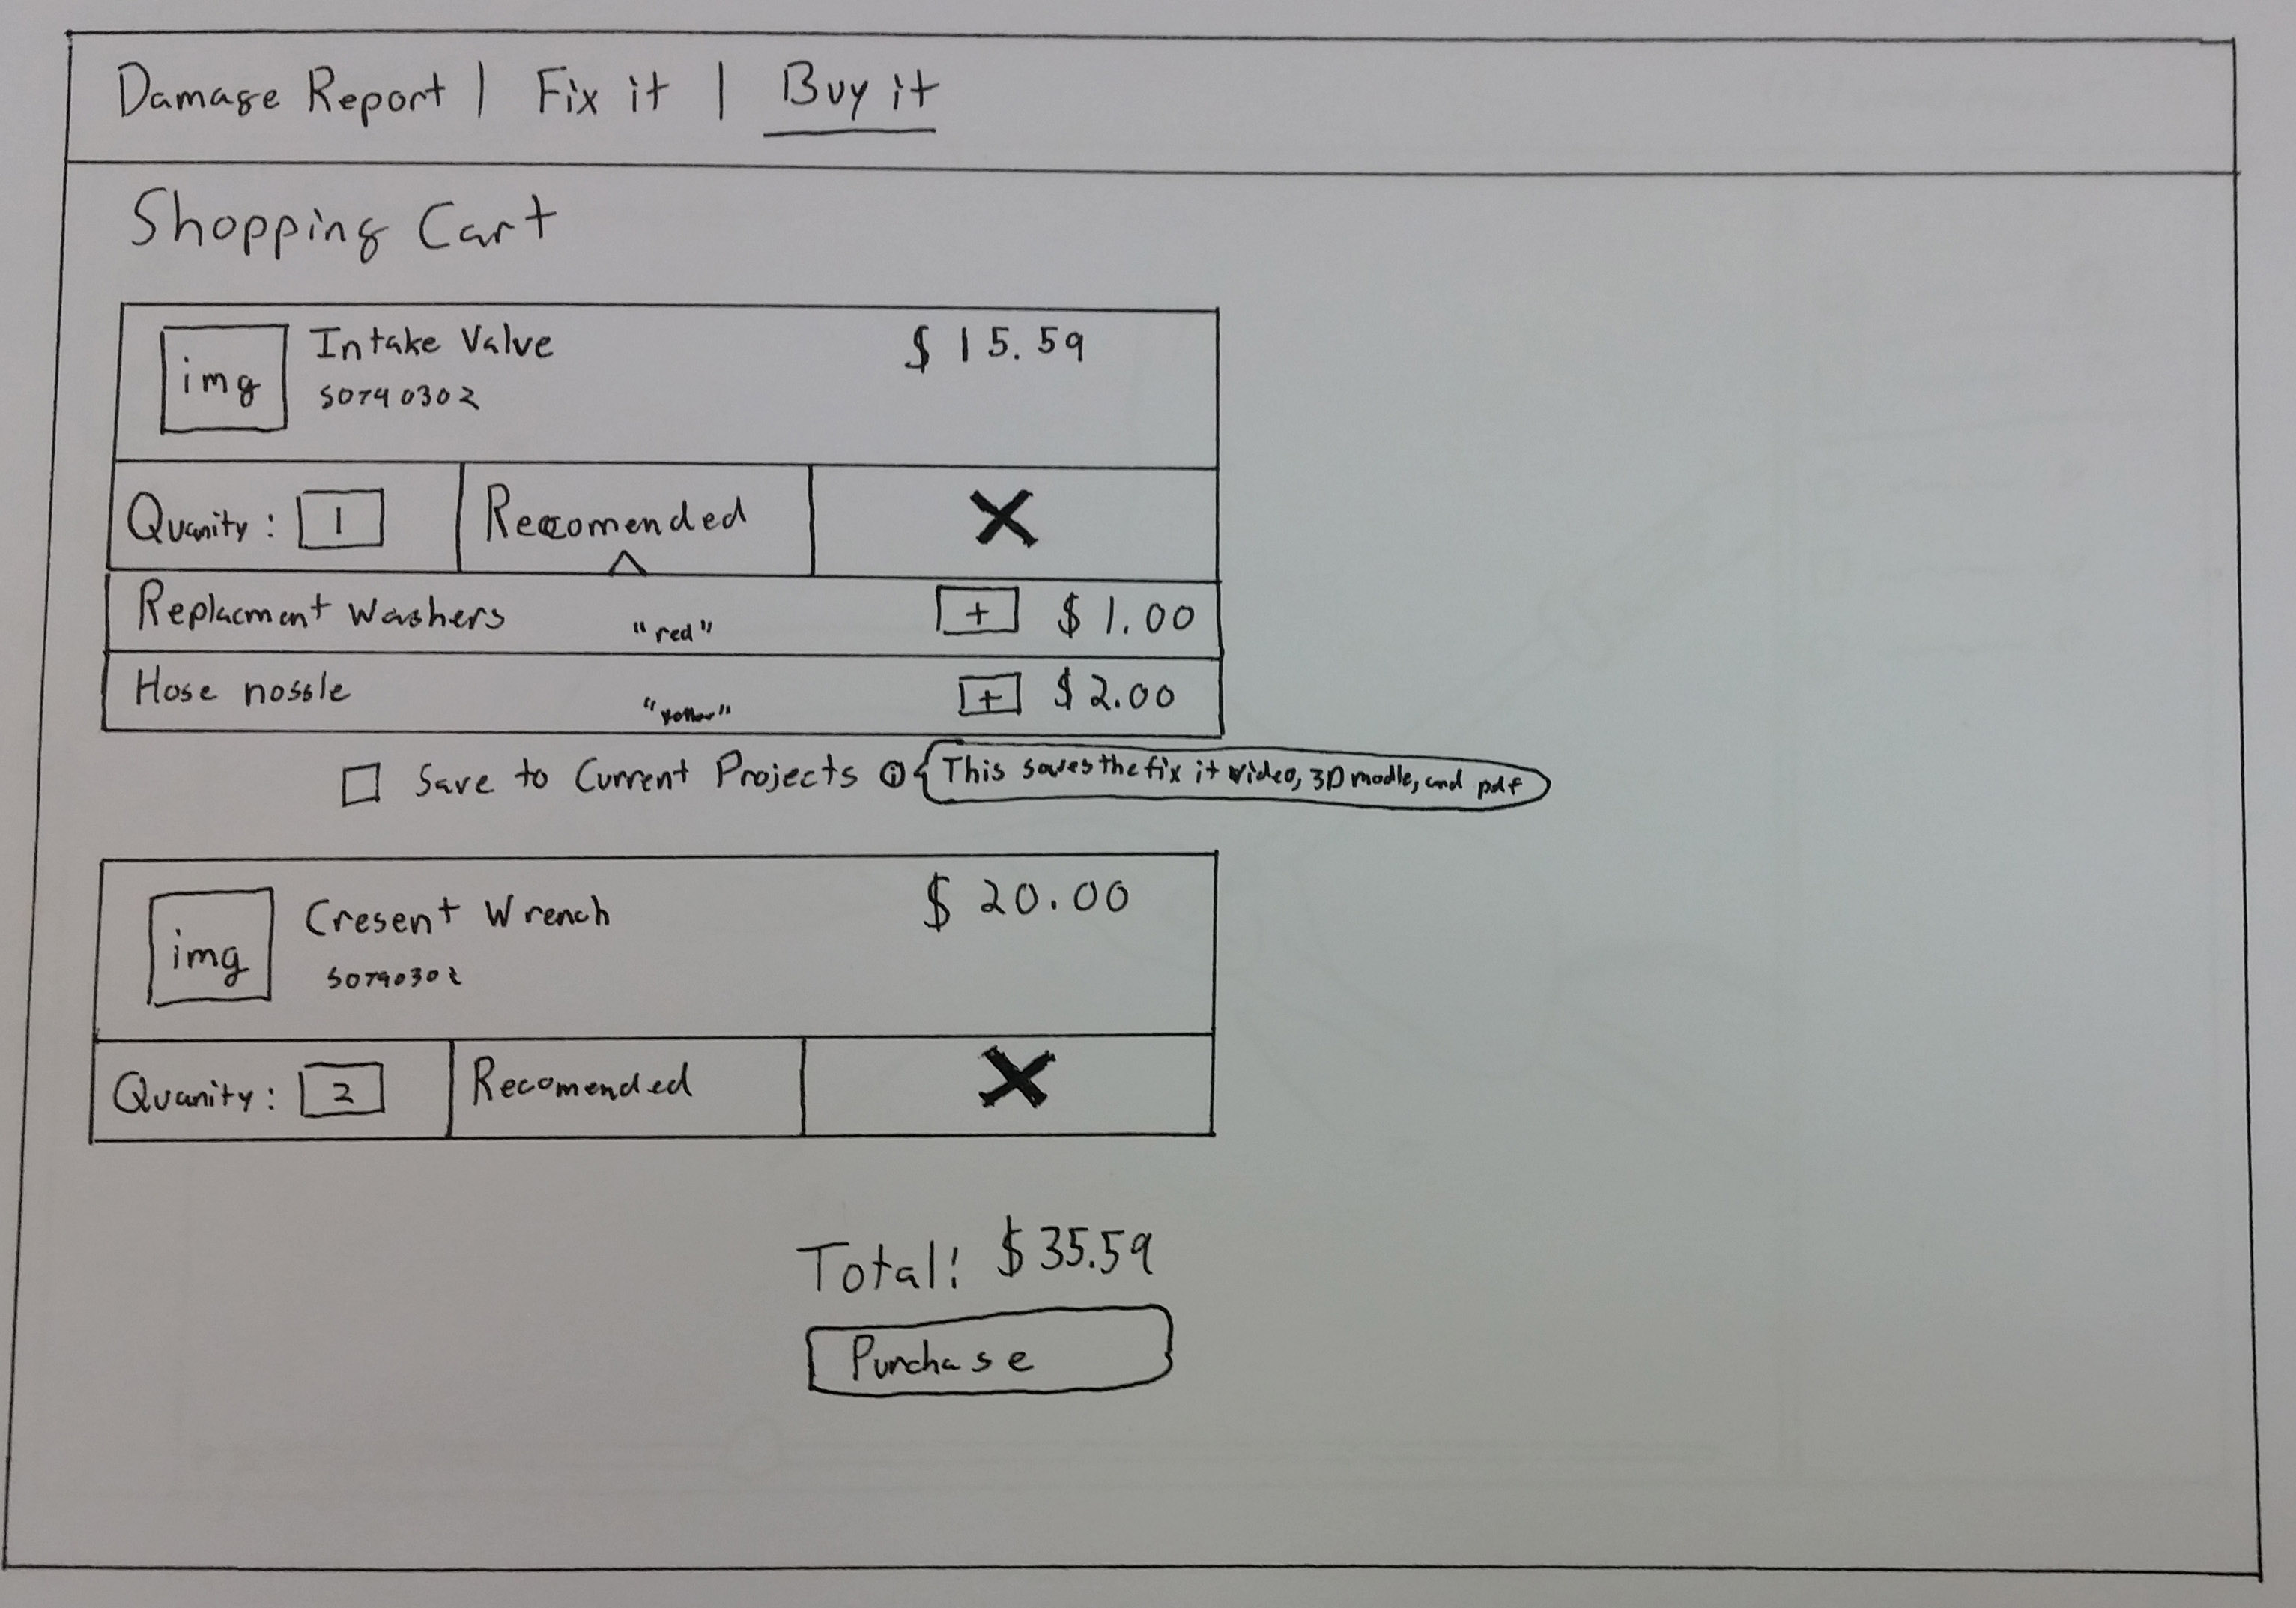 Damage Report | Fix it | Buy it
Shopping Cart
img
Intake Valve
$ 15.59
50790302
Quanity : 1
Reccomended
X
Replacment Washers "red" + $ 1.00
Hose nossle + $ 2.00
Save to Current Projects i This saves the fix it video, 3D modle, and pdf
img
Cresent Wrench
$ 20.00
50790302
Quanity : 2
Recomended
X
Total: $35.59
Purchase